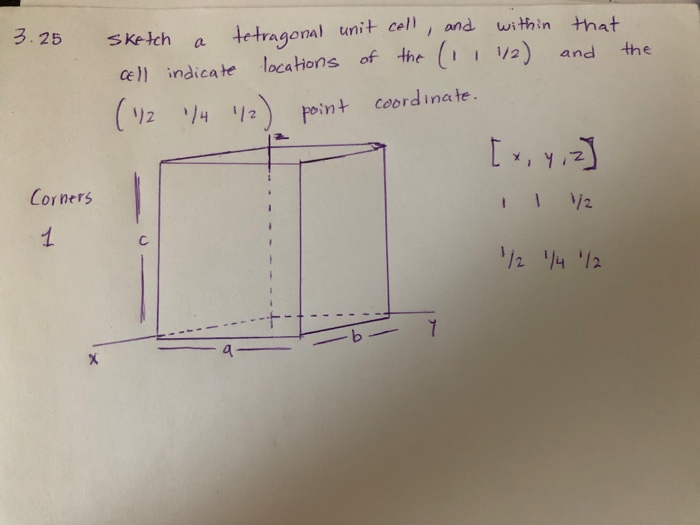 3.25 sketch a tetragonal unit cell, and within that
cell indicate locations of the (1 1 1/2) and the
(1/2 1/4 1/2) point coordinate.
z
[x, y, z]
Corners
1 1 1/2
1
c
1/2 1/4 1/2
x
a
b
y